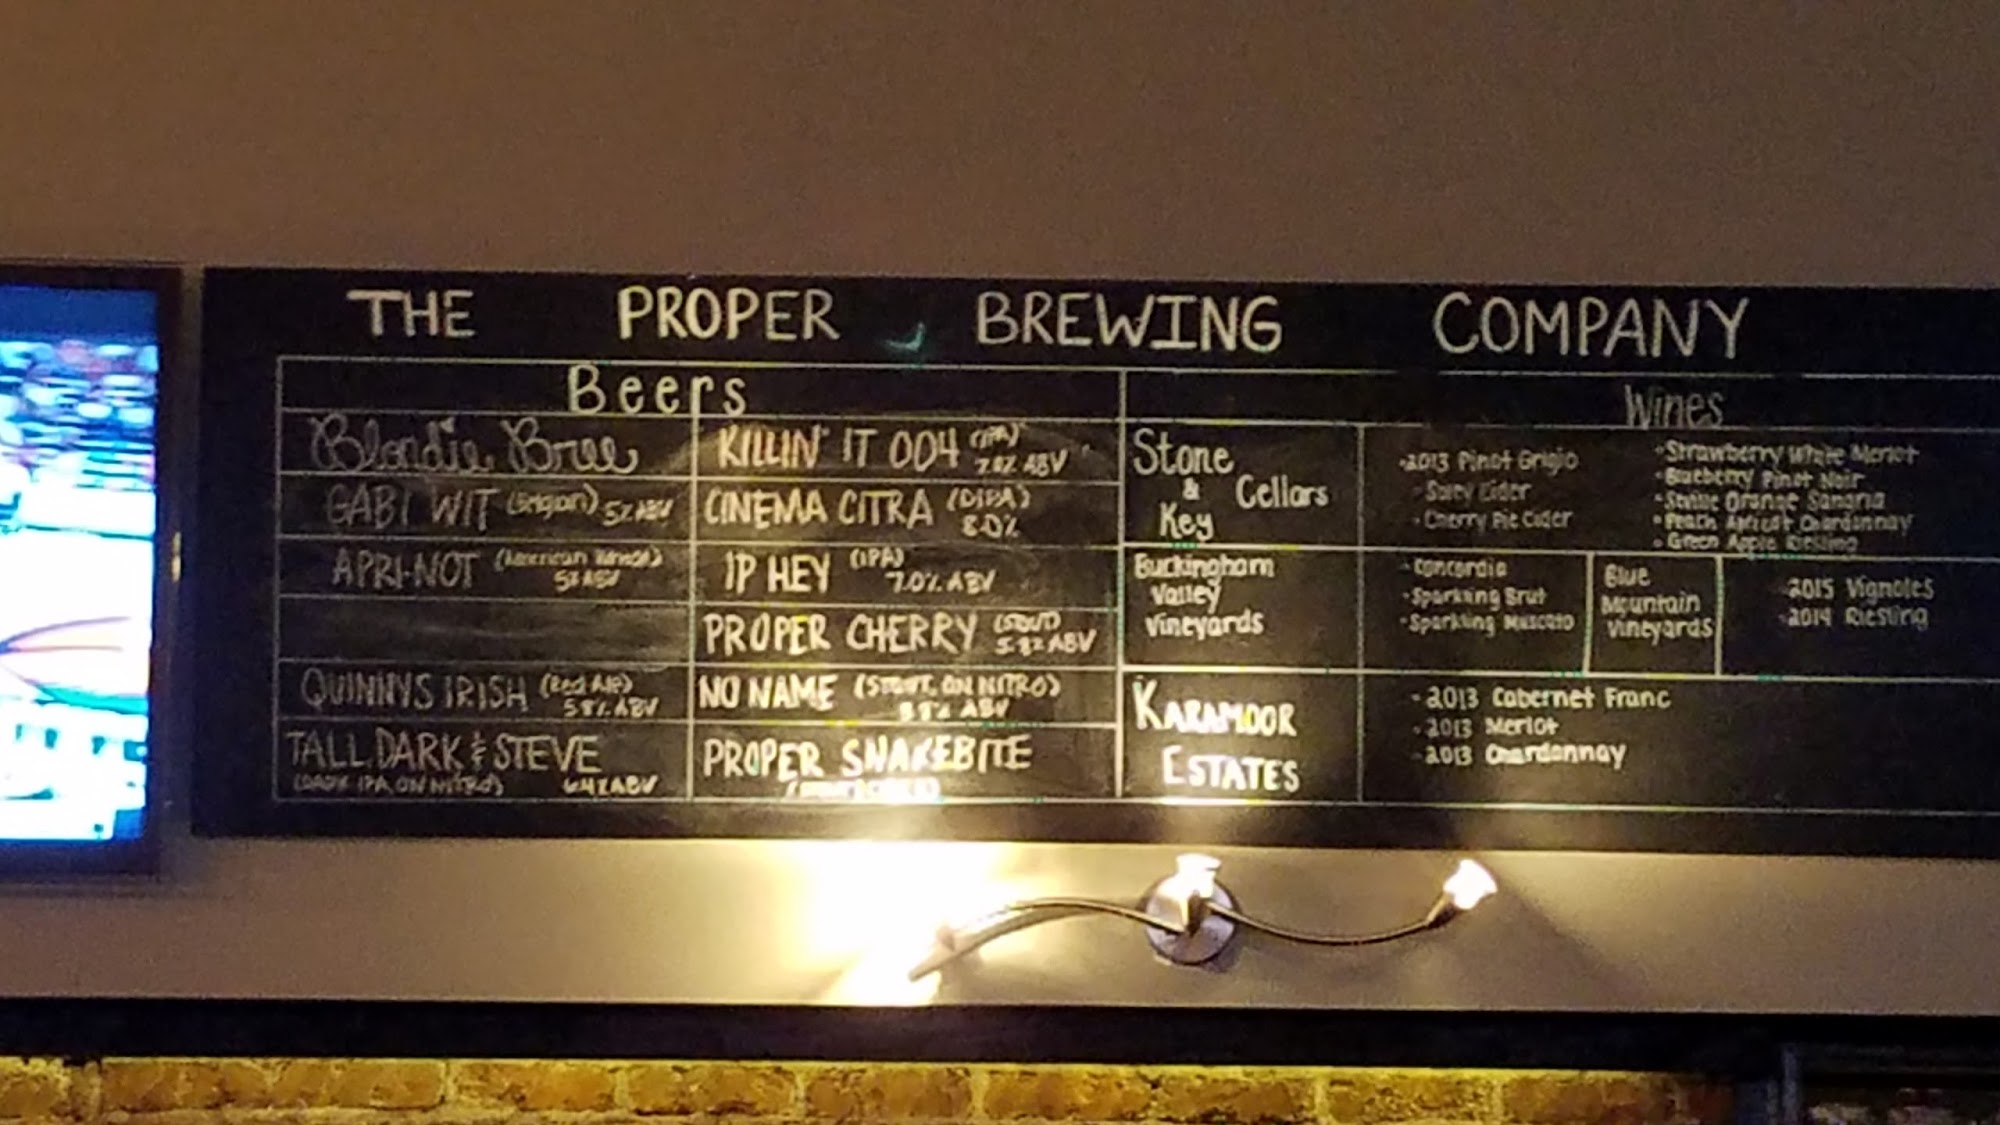 THE PROPER BREWING COMPANY
Beers
Blondie Bree
GABI WIT (Belgian) 5% ABV
APRI-NOT (American Wheat)
5% ABV
QUINNYS IRISH (Red Ale)
5.8% ABV
TALL, DARK & STEVE
(DARK IPA, ON NITRO) 6.4% ABV
KILLIN' IT 004 (IPA)
7.0% ABV
CINEMA CITRA (DIPA)
8.0%
IP HEY (IPA)
7.0% ABV
PROPER CHERRY (STOUT)
5.8% ABV
NO NAME (STOUT, ON NITRO)
ABV
PROPER SNAKEBITE
Wines
Stone
& Cellars
Key
- 2013 Pinot Grigio
- Cider
- Cherry Pie Cider
- Strawberry White Merlot
- Blueberry Pinot Noir
- Orange Sangria
- Peach Apricot Chardonnay
- Green Apple Riesling
Buckingham
Valley
Vineyards
- Concordia
- Sparkling Brut
- Sparkling Muscato
Blue
Mountain
Vineyards
- 2015 Vignoles
- 2014 Riesling
KARAMOOR
ESTATES
- 2013 Cabernet Franc
- 2013 Merlot
- 2013 Chardonnay